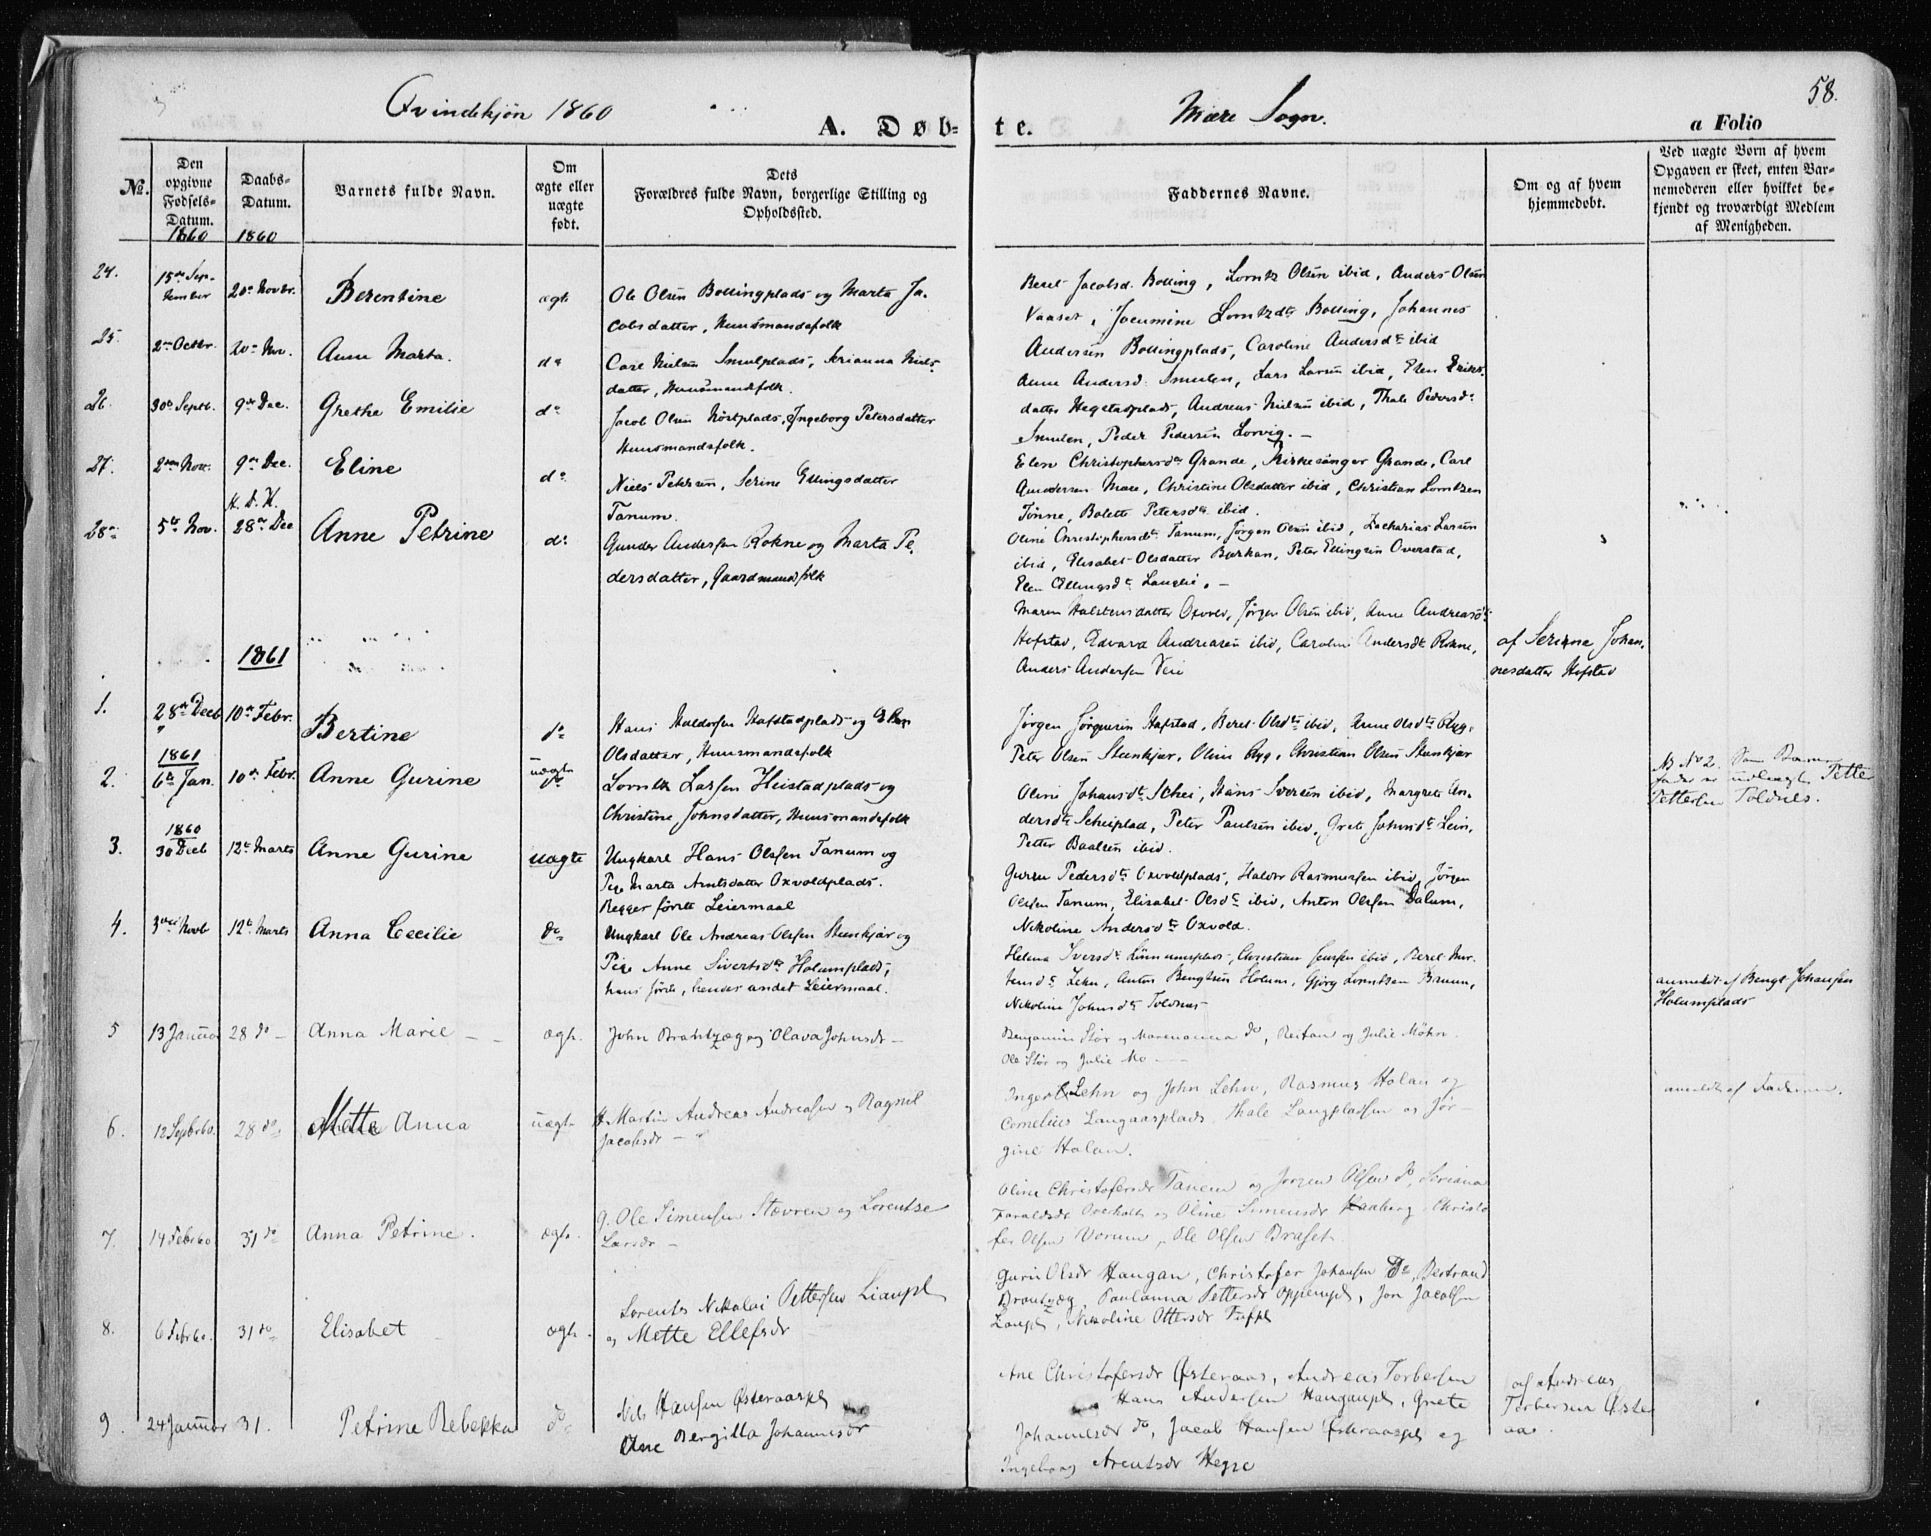 58.
Qvindekjøn 1860
A. Døb-
te.
Mære Sogn.
a Folio
No.
Den opgivne Fødsels-Datum.
1860
Daabs-Datum.
1860
Barnets fulde Navn.
Om ægte eller uægte født.
Dets
Forældres fulde Navn, borgerlige Stilling og
Opholdssted.
Faddernes Navne.
Om og af hvem
hjemmedøbt.
Ved uægte Børn af hvem
Opgaven er skeet, enten Bar-
nemoderen eller hvilket be-
kjendt og troværdigt Medlem
af Menigheden.
24. 15de September 20de Novbr. Berentine ægte
Ole Olsen Bollingplads og Marta Ja-
cobsdatter, Huusmandsfolk
Beret Jacobsd. Bolling, Lorntz Olsen ibid, Anders Olsen
Vaaset, Jocumine Lorntzdtr Bolling, Johannes
Andersen Bollingplads, Caroline Andersdtr ibid
25. 2den Octbr. 20de Nov. Anne Marta. do
Carl Nielsen Smulplads, Arianna Niels-
datter, Huusmandsfolk.
Anne Andersd. Smulen, Lars Larsen ibid, Elen Eriks-
datter Hegstadplads, Andreas Nielsen ibid, Thale Pedersd.
Smulen, Peder Pedersen Lorvig.
26. 30te Septb. 9de Dec. Grethe Emilie do
Jacob Olsen Røstplads, Ingeborg Petersdatter
Huusmandsfolk.
Elen Christophersdtr Grande, Kirkesanger Grande, Carl
Andersen Mære, Christine Olsdatter ibid, Christian Lorntzen
Tønne, Bolette Petersdtr ibid.
27. 2den Nov. 9de Dec. Eline do
Niels Petersen, Serine Ellingsdatter
Tanum.
Oline Christophersdtr Tanum, Jørgen Olsen ibid, Zacharias Larsen
ibid, Elisabet Olsdatter Bærkan, Peter Ellingsen Overstad,
Elen Ellingsdtr Langlie.
H. D. K.
28de 5te Nov. 28de Dec Anne Petrine do
Gunder Andersen Rokne og Marta Pe-
dersdatter, Gaardmandsfolk
Maren Halstensdatter Oxvol, Jørgen Olsen ibid, Anne Andreasdtr
Hofstad, Edvard Andreasen ibid, Caroline Andersdtr Rokne,
Anders Andersen Veie
af Serinne Johan-
nesdatter Hofstad
1861
1. 28de Decb 10de Febr. Bertine do
Hans Haldorsen Hofstadplads og Elen
Olsdatter, Huusmandsfolk
Jørgen Jørgensen Hofstad, Beret Olsdtr ibid, Anne Olsdtr Ryg,
Peter Olsen Steenkjær, Oline Ryg, Christian Olsen Steenkjær
1861
2. 6te Jan. 10de Febr. Anne Gurine uægte do
Lorntz Larsen Heistadplads og
Christine Johnsdatter, Huusmandsfolk
Oline Johansdtr Schei, Hans Sversen ibid, Margrete An-
dersdtr Scheiplad, Peter Paulsen ibid, Grete Johnsdtr Lein,
Petter Baalsen ibid.
NB No 2. Som Barne-
fader er udlagt Petter
Pettersen Toldnes.
1860
3. 30 Decb 12te Marts Anne Gurine uægte
Ungkarl Hans Olsen Tanum og
Pige Marta Arntsdatter Oxvoldplads.
Begges første Leiermaal
Guren Pedersdtr Oxvoldplads, Haldor Rasmussen ibid, Jørgen
Olsen Tanum, Elisabet Olsdtr ibid, Anton Olsen Dalum,
Nikoline Andersdtr Oxvold.
4. 3die Novb 12te Marts Anna Cecilie do
Ungkarl Ole Andreas Olsen Steenkjær og
Pige Anne Sivertsdtr Holumplads,
hans første, hendes andet Leiermaal.
Helena Iversdtr Linnumsplads, Christian Jensen ibid, Beret Mor-
tensdtr Lehn, Anton Bengtsen Holum, Gjørg Lorntzen Bruum,
Nikoline Johnsdtr Toldnæs
anmeldt af Bengt Johansen
Holumplads
5 13 Januar 28 do Anna Marie ægte.
John Brandtzæg og Olava Johnsdr
Benjamin Stør og Marenanna do, Reitan og Julie Møkn.
Ole Stør og Julie Mo
6. 12 Septbr 60. 28 do Mette Anna uægte
Martin Andreas Andreassen og Ragnil
Jacobsdr
Ingeb. Lehn og John Lehn, Rasmus Holan og
Cornelius Langaasplads, Thale Langpladsen og Jør-
gine Holan.
anmeldt af Faderen.
7. 14 Febr 60 31 do Anna Petrine. ægte.
G. Ole Simensen Stavren og Lorentse
Larsdr
Oline Christofersdr Tanem og Jørgen Olsen do, Seriana
Faraldsdr Overholt og Oline Simensdr Kaaberg, Christo-
fer Olsen Vorum, Ole Olsen Bruset.
8. 6 Febr 60. 31 do Elisabet ægte.
Lorents Nikolai Pettersen Liaupl
og Mette Ellefsdr
Gurin Olsdr Haugan, Christofer Johansen Do, Bertrand
Brandtzæg, Paulanna Pettersdr Oppempl., Jon Jacobsen
Laupl, Nikoline Ottersdr Tufpl
9. 24 Januar 31. Petrine Rebekka do
Nils Hansen Østeraaspl
Ane Bergitta Johannesdr
Ane Christofersdr Østeraas, Andreas Torbersen
Hans Andersen Hanganpl, Grete
Johannesdr do, Jacob Hansen Østeraaspl og
Ingeborg Arentsdr Hegge
af Andreas
Torbersen Øster
aas.